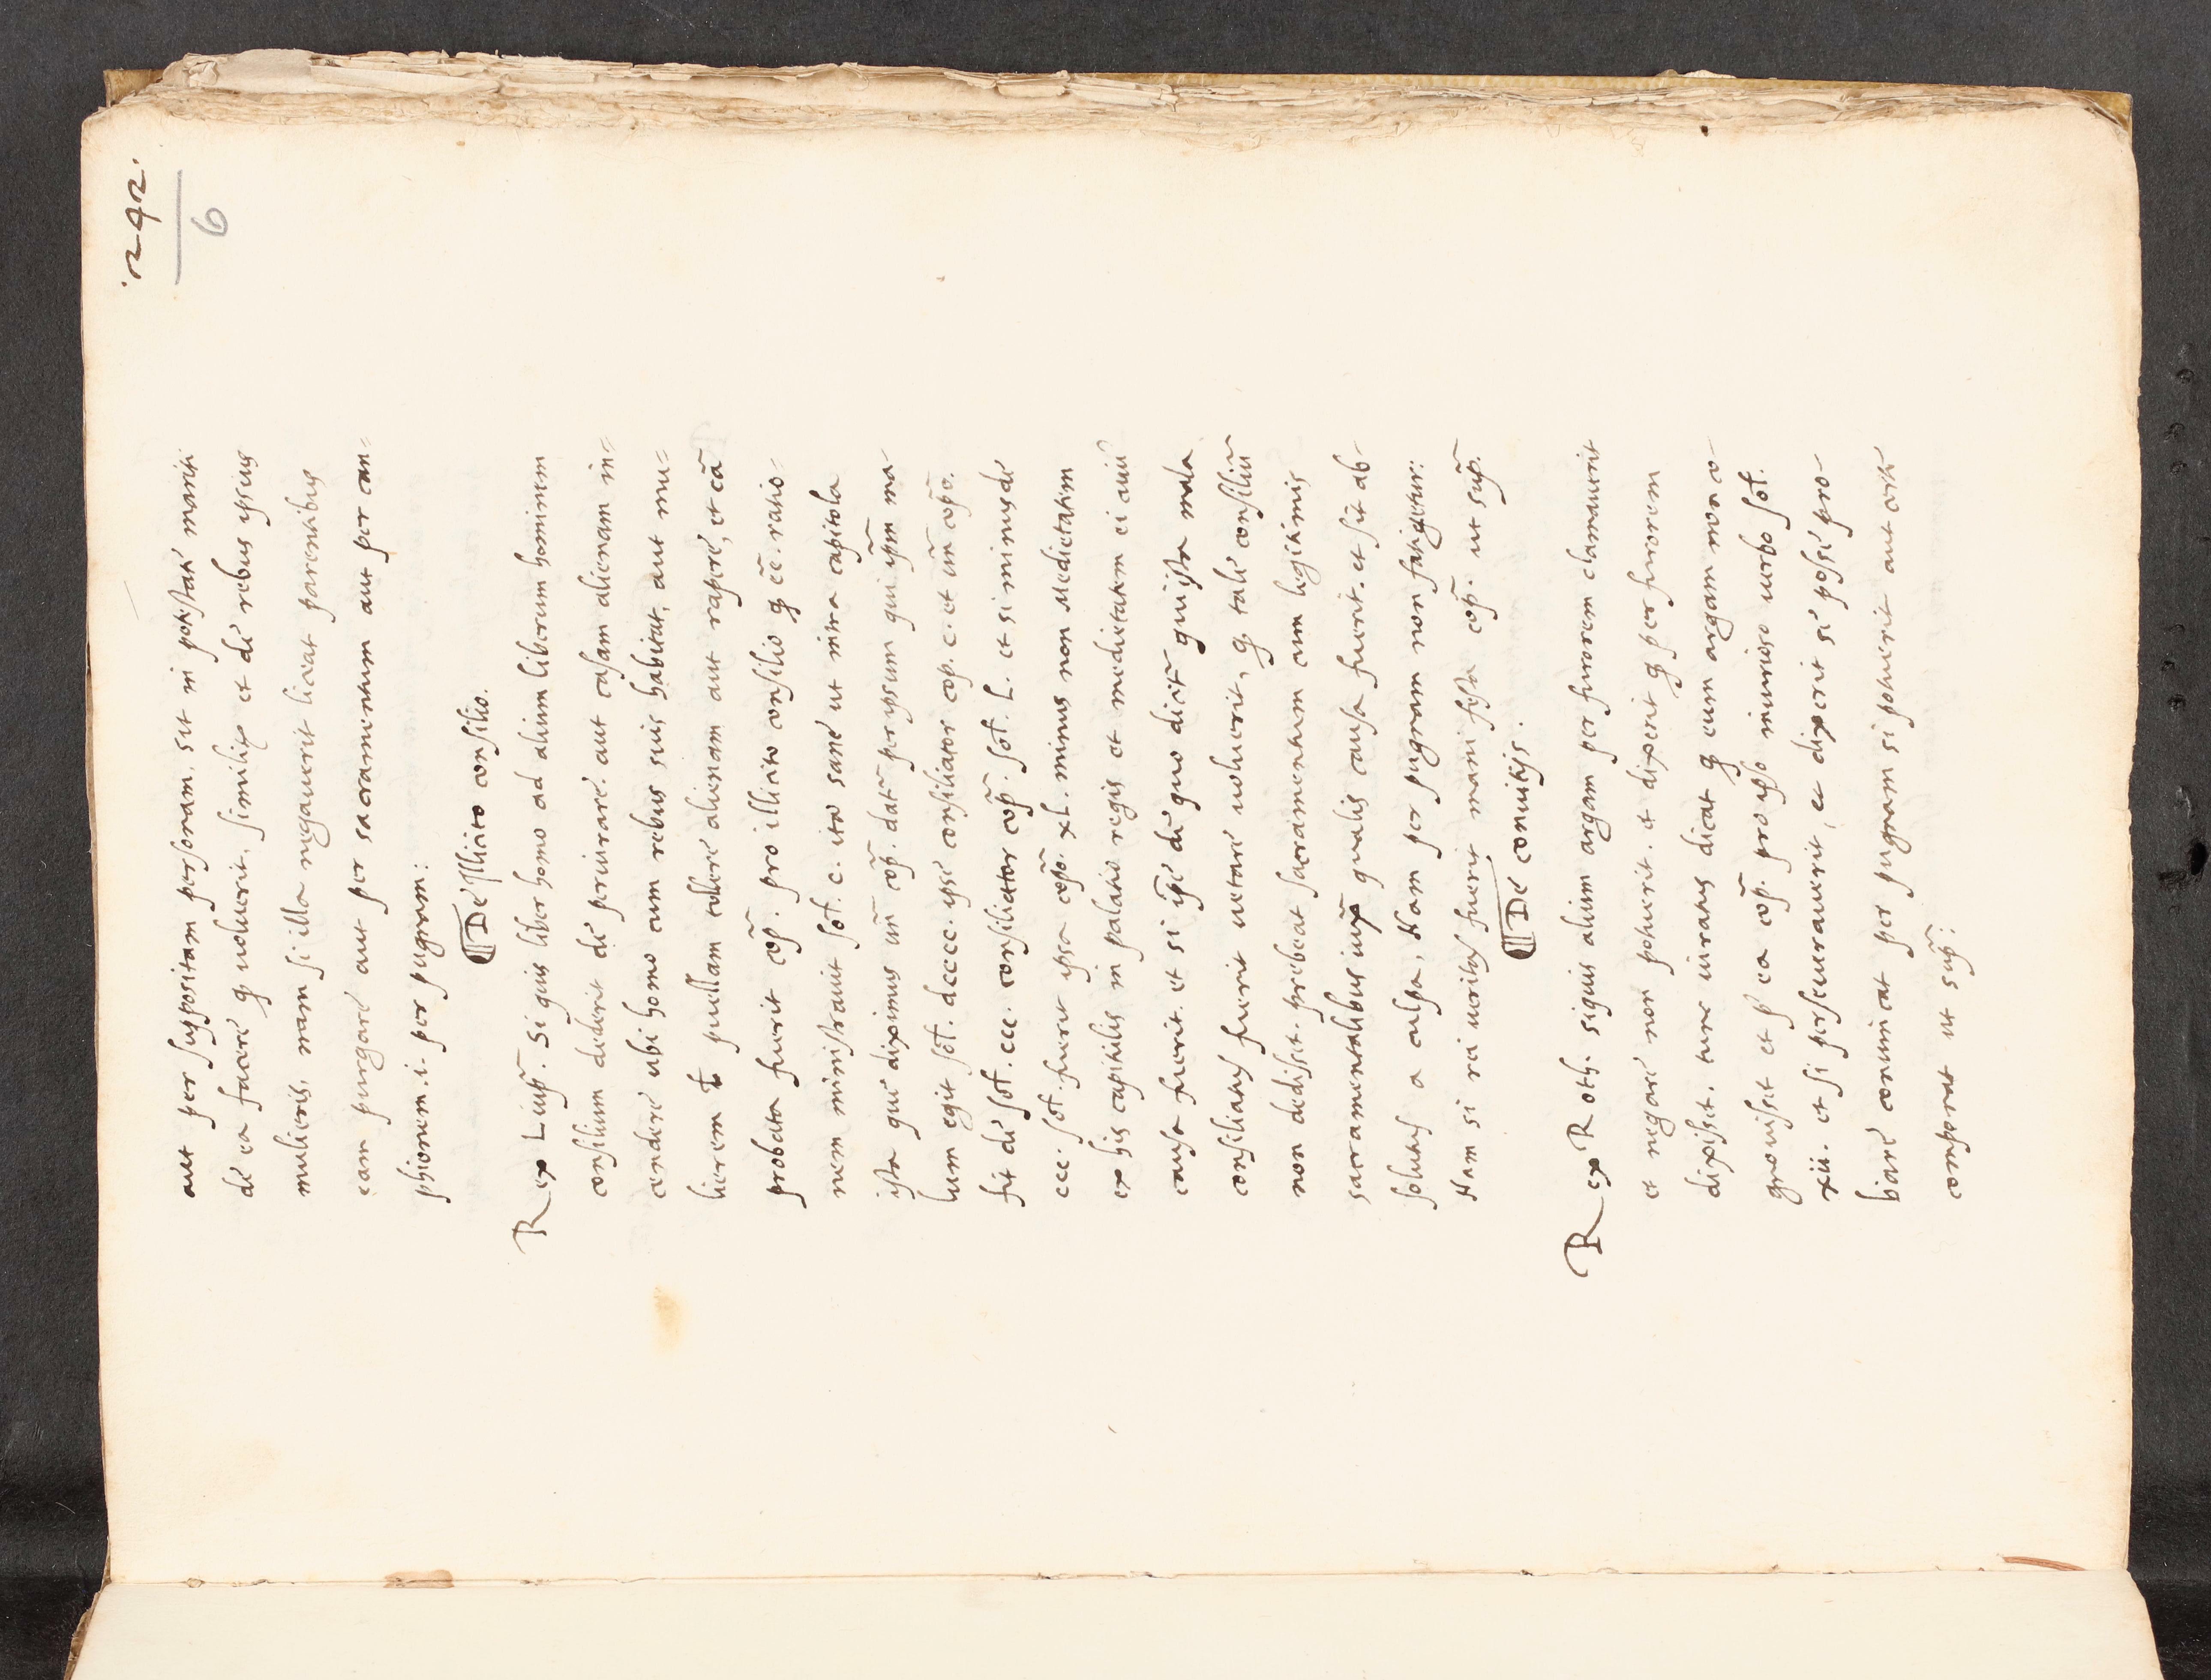 ·242·
6
aut per suppositam personam. sit in potestate mariti
de ea facere q̄ uoluerit, similiter et de rebus ipsius
mulieris, nam si illa negauerit liceat parentibus
eam purgare aut per sacramentum aut per cam=
phionem .i. per pugnam:
¶ De illicito consilio.
Rex Liup̄. Si quis liber homo ad alium liberum hominem
consilium dederit de periurare. aut casam alienam in=
cendere ubi homo cum rebus suis habitat, aut mu=
lierem ł puellam tollere alienam aut rapere, et cā
probata fuerit cop̄. pro illicito consilio q̄ ēē. ratio-
nem ministrauit soł. c. ita sane ut intra capitola
ista que diximus uñ cōp. datr̄ per ipsum qui ip̄m ma-
lum egit soł. dcccc. ipse consiliator cop. c. et uñ cop̄o.
fit de soł. ccc. consiliator cop̄. soł. L. et si minus de
ccc. soł. fuerit ipsa cop̄o. xL. minus non medietatem
ex his capitulis in palatio regis et medietatem ei cuiū
causa fuerit. et si ip̄e de quo dicitr̄ qui ista mala
consiliatus fuerit uetare uoluerit, q̄ tale consiliū
non dedisset. prebeat sacramentum cum legitimis
sacramentalibus iuxͣ qualis causa fuerit. et sit ab-
solutus a culpa, Nam per pugnam non fatigetur:
Nam si rei ueritas fuerit manifesta cop̄. ut sup̄.
¶ De conuitijs.
Rex Roth. siquis alium argam per furorem clamauerit
et negare non potuerit. et dixerit q̄ per furorem
dixisset. tunc iuratus dicat q̄ eum argam non co-
gnouisset et p̄ ea cop̄. pro ipso iniurioso uerbo soł.
xii. et si perseuerauerit, et dixerit se posse pro-
bare conuincat per pugnam si potuerit aut certe
componat ut sup̄: